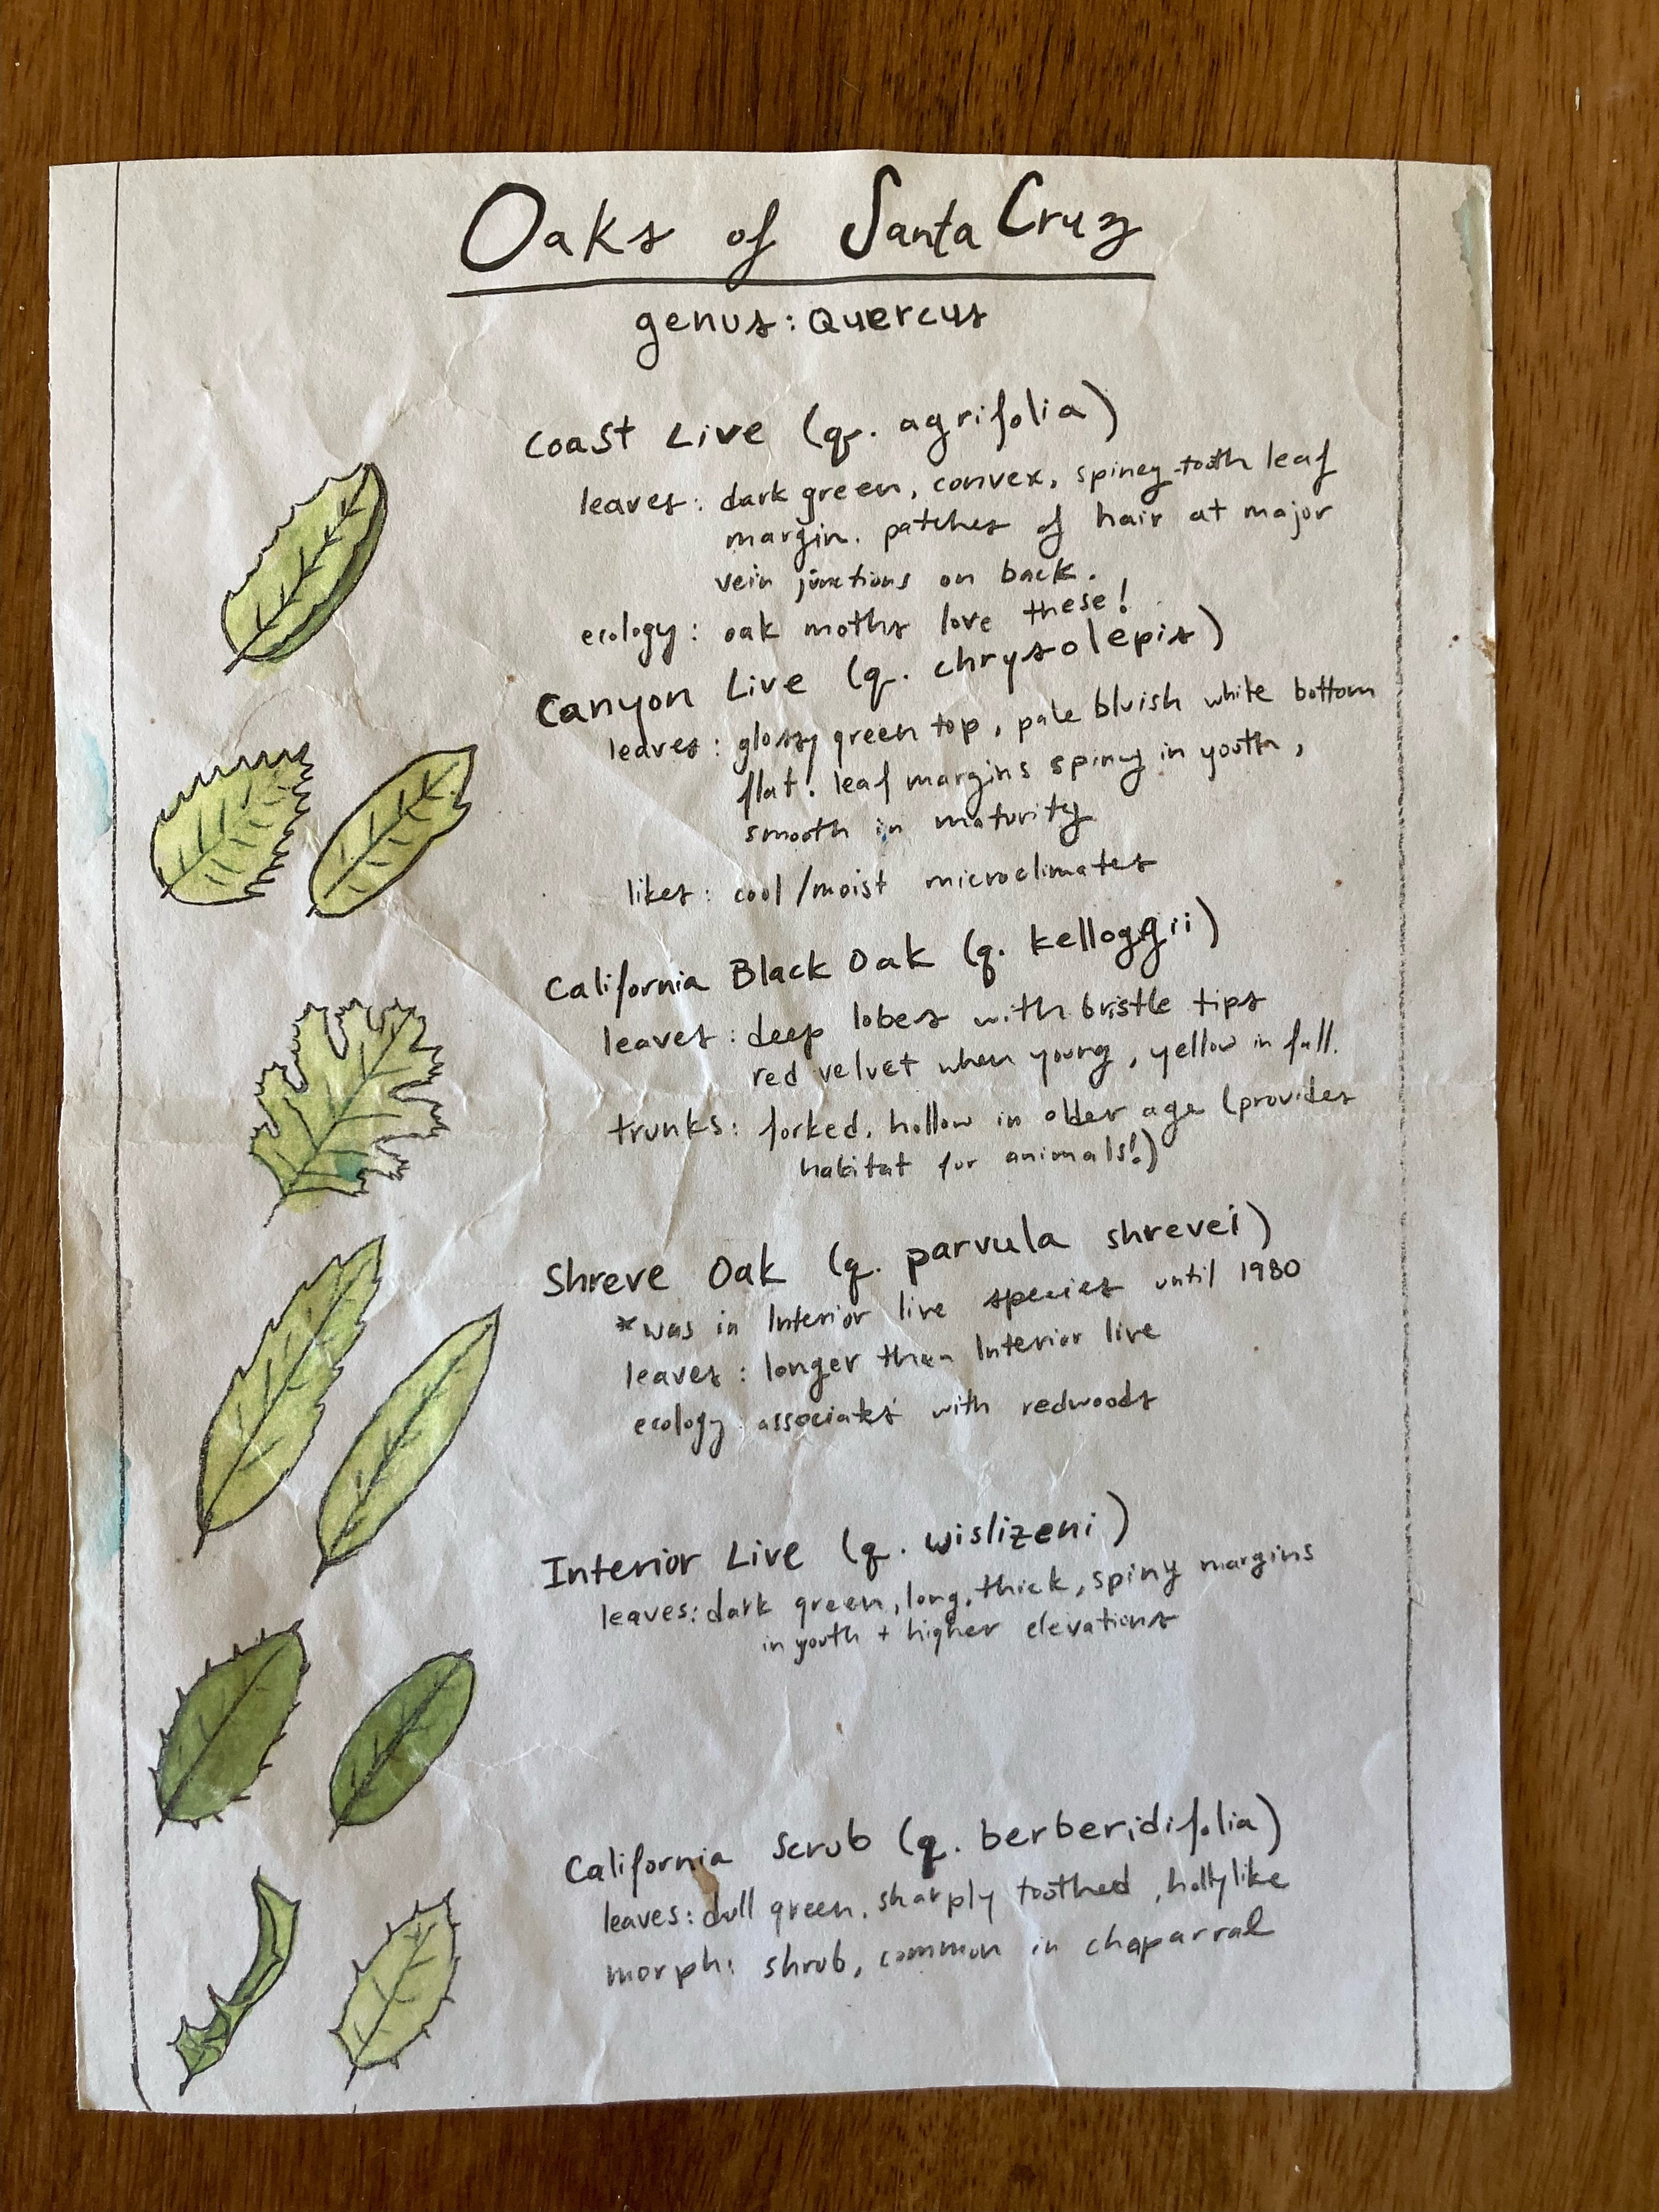 Oaks of Santa Cruz
genus: Quercus
Coast Live (q. agrifolia)
leaves: dark green, convex, spiney-tooth leaf
margin. patches of hair at major
vein junctions on back.
ecology: oak moths love these!
Canyon Live (q. chrysolepis)
leaves: glossy green top, pale bluish white bottom
flat! leaf margins spiny in youth,
smooth in maturity
likes: cool/moist microclimates
California Black Oak (q. kelloggii)
leaves: deep lobes with bristle tips
red velvet when young, yellow in fall.
trunks: forked, hollow in older age (provides
habitat for animals!)
Shreve Oak (q. parvula shrevei)
*was in Interior live species until 1980
leaves: longer than Interior live
ecology: associates with redwoods
Interior Live (q. wislizeni)
leaves: dark green, long, thick, spiny margins
in youth + higher elevations
California Scrub (q. berberidifolia)
leaves: dull green, sharply toothed, hollylike
morph: shrub, common in chaparral